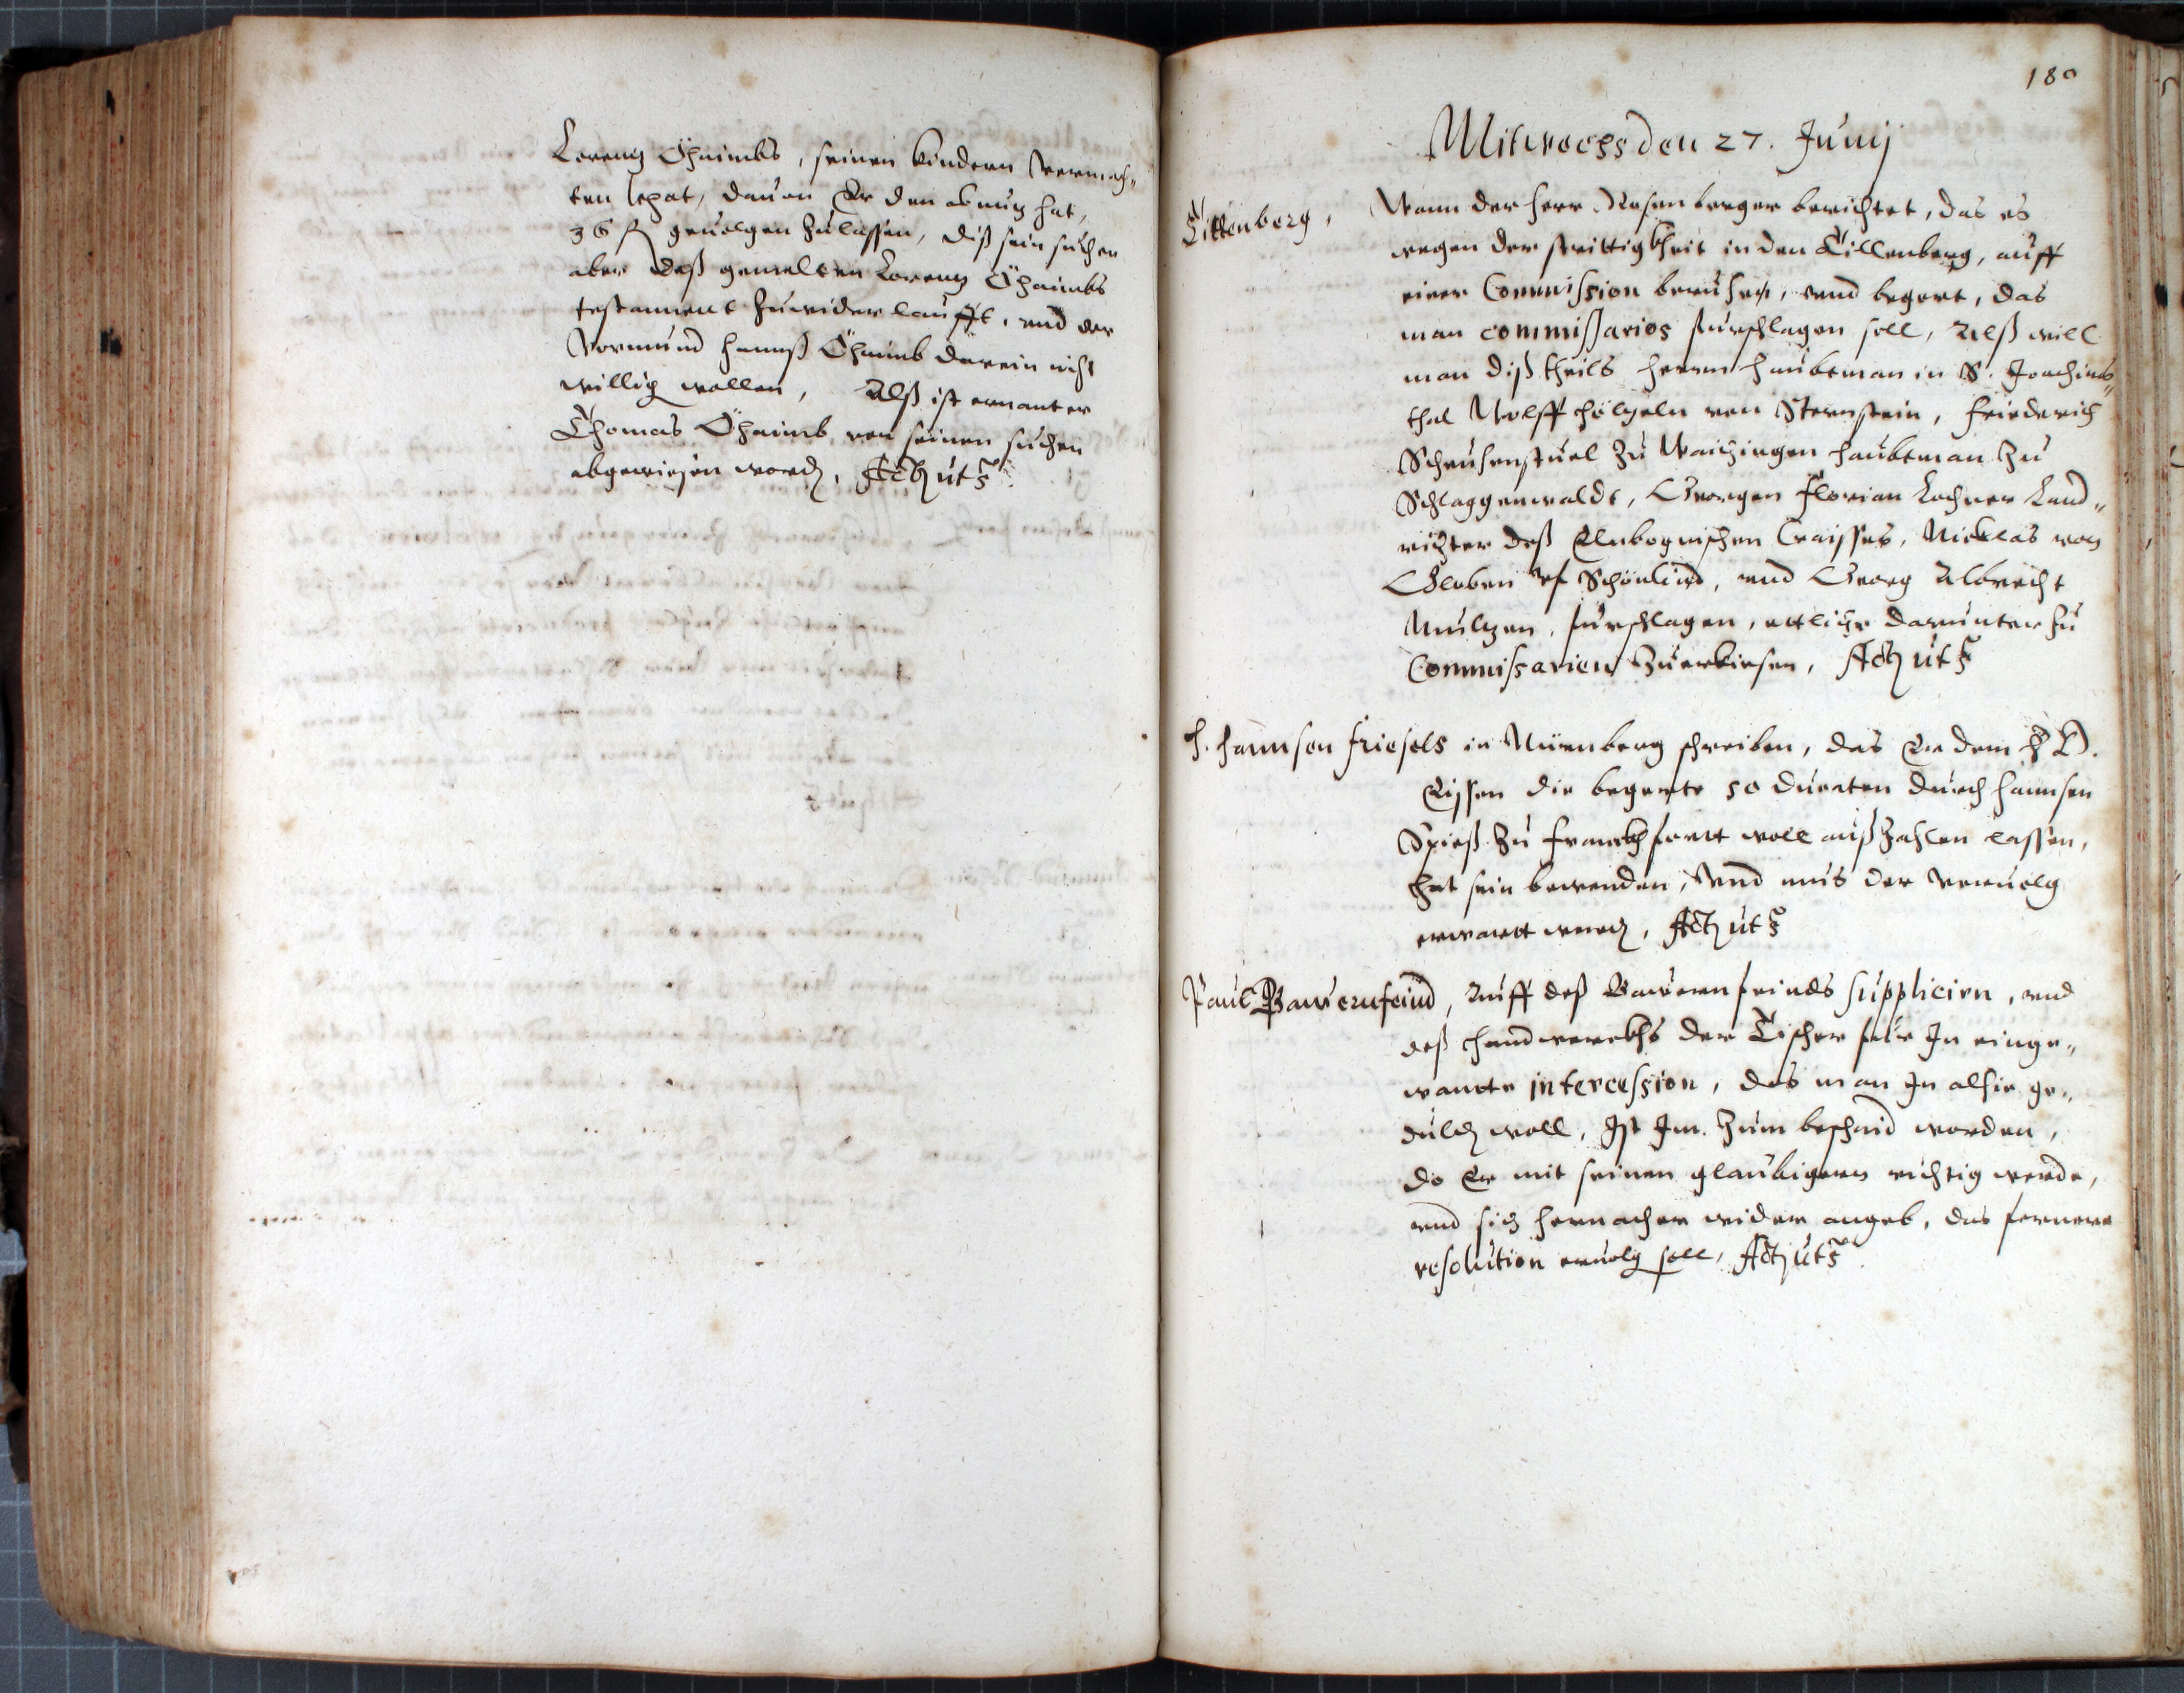 Lorentz Öhaimbs, seinen kindern vermach„
ten legat, dauon Er den abnutz hat,
36 fl geuolgen zulassen, diß sein suchen
aber deß gemelten Lorentz Öhaimbs
testament zuwider laufft, und der
Vormund Hannß Öhaimb darein nicht
willig wollen, Alß ist ernanter
Thomas Öhaimb von seinen suchen
abgewiesen word, Act ut s
180
Mitwochs den 27. Junij
Tillenberg,
Wann der Herr Rosenberger berichtet, das es
wegen der strittigkheit in den Tillenberg, auff
einer Commission beruhen, vnd begert, das
man commissarios furschlagen soll, Alß will
man diß theils herrn haubtman in S. Joachims„
thal Wolff Hölzeln von Sternstein, Friederich
Scheuhenstuel zu haubtman zu
Schlaggenwaldt, Georgen Florian Lochner Land„
richter deß Elnbognischen Craisses, Nicklas von
Globen vf Schönlind, vnd Georg Albrecht
Mulzen, furschlagen, ettliche darunter zu
Commissarien zu erkiesen, Act ut s
H. Hannsen Friesels in Nürnberg schreiben, das Er dem H D.
die begerte 50 ducaten durch Hannsen
Spieß zu Franckhfortt woll außzahlen lassen,
hat sein bewenden, Vnd mus der veruolg
erwartt werd, Act ut s
Paul Bawernfeind, Auff deß Bawernfeinds supplicirn, vnd
deß handwerckhs der Tischer fur In einge„
wante intercession, das man In alhie ge„
duld woll, Ist Im zum beschaid worden,
do Er mit seinen glaubigern richtig werde,
vnd sich hernacher wider angeb, das fernere
resolution eruolg soll, Act ut s